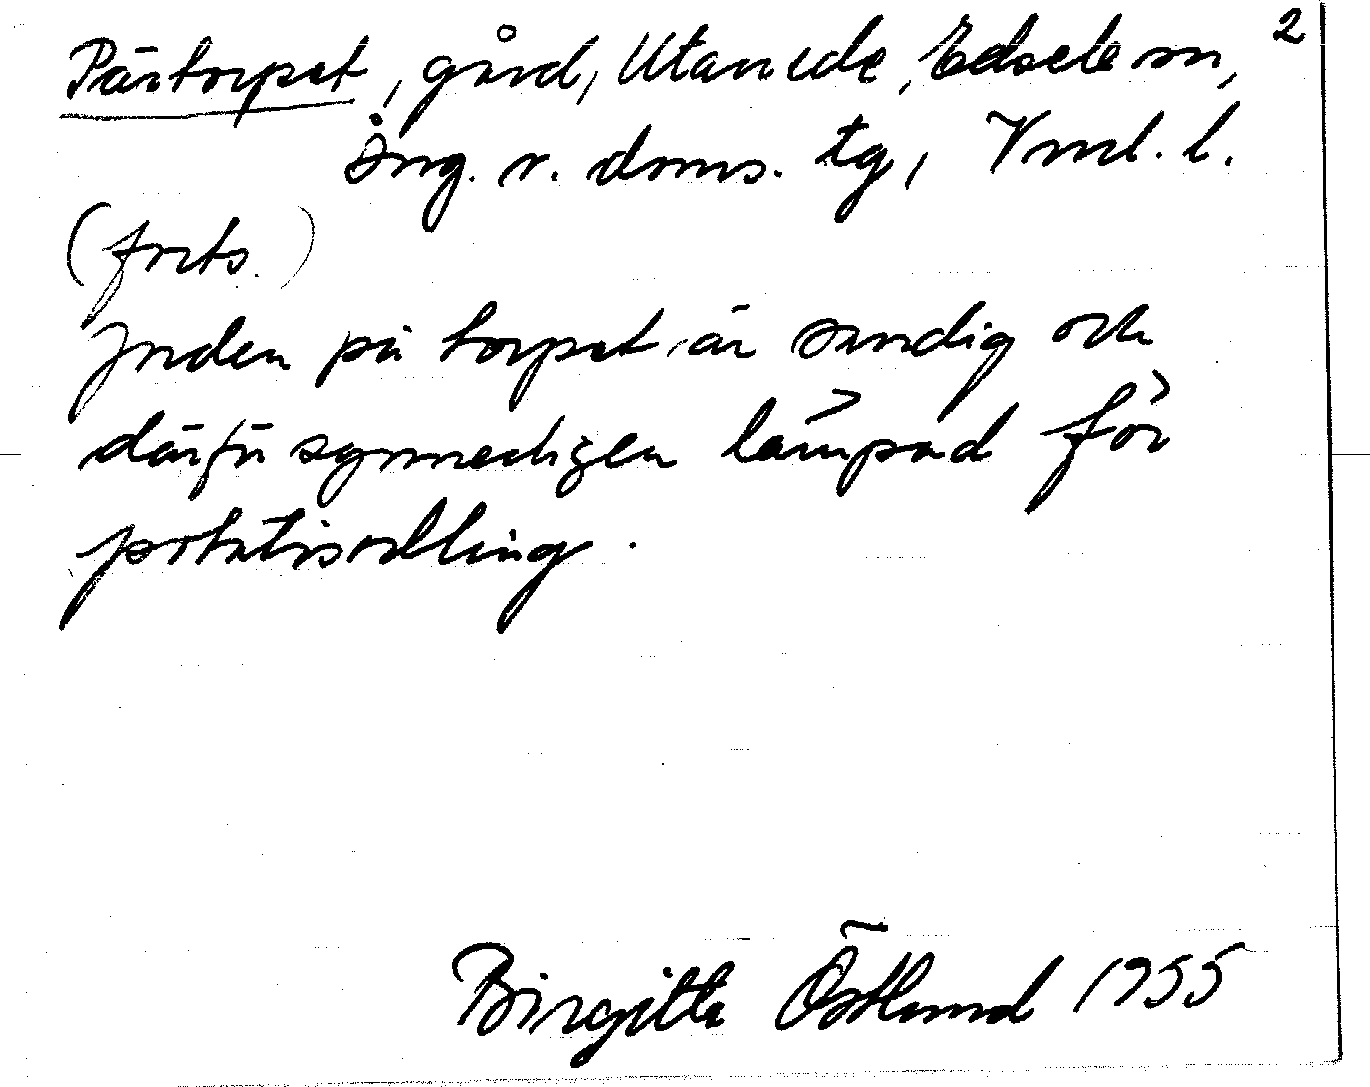 2
Pärtorpet, gård, Utanede, Edsele sn,
Ång. v. doms. tg, Vnl. l.
(forts.)
Jorden på torpet är sandig och
därför synnerligen lämpad för
potatisodling.
Birgitta Östlund 1955